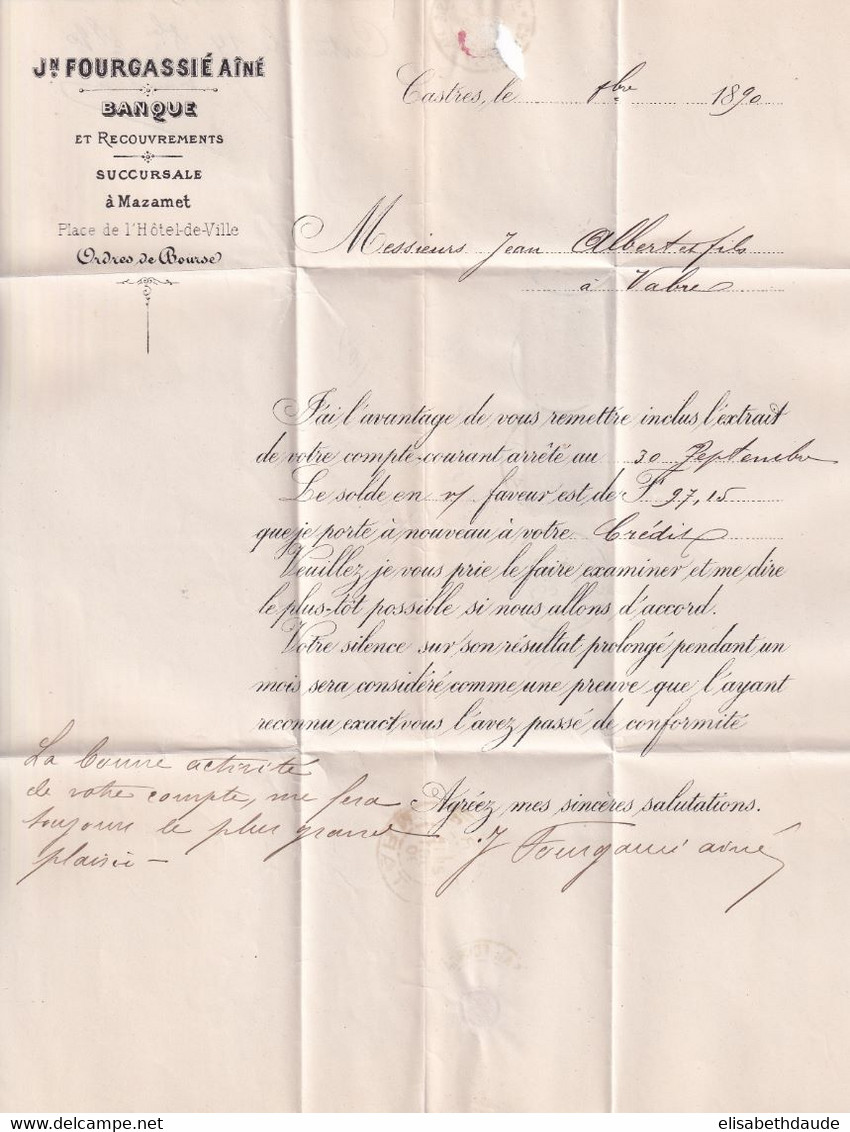 JN FOURGASSIÉ AÎNÉ
BANQUE
ET RECOUVREMENTS
SUCCURSALE
à Mazamet
Place de l'Hôtel-de-Ville
Ordres de Bourse
Castres, le 8bre 1890
Messieurs Jean Albert et fils
à Vabre
J'ai l'avantage de vous remettre inclus l'extrait
de votre compte-courant arrêté au 30 Septembre
Le solde en v/ faveur est de F 97,15
que je porte à nouveau à votre Crédit
Veuillez je vous prie le faire examiner et me dire
le plus-tôt possible si nous allons d'accord.
Votre silence sur son résultat prolongé pendant un
mois sera considéré comme une preuve que l'ayant
reconnu exact vous l'avez passé de conformité
Agréez mes sincères salutations.
J Fourgassié aîné
La bonne activité
de votre compte, me fera
toujours le plus grand
plaisir -
elisabethdaude